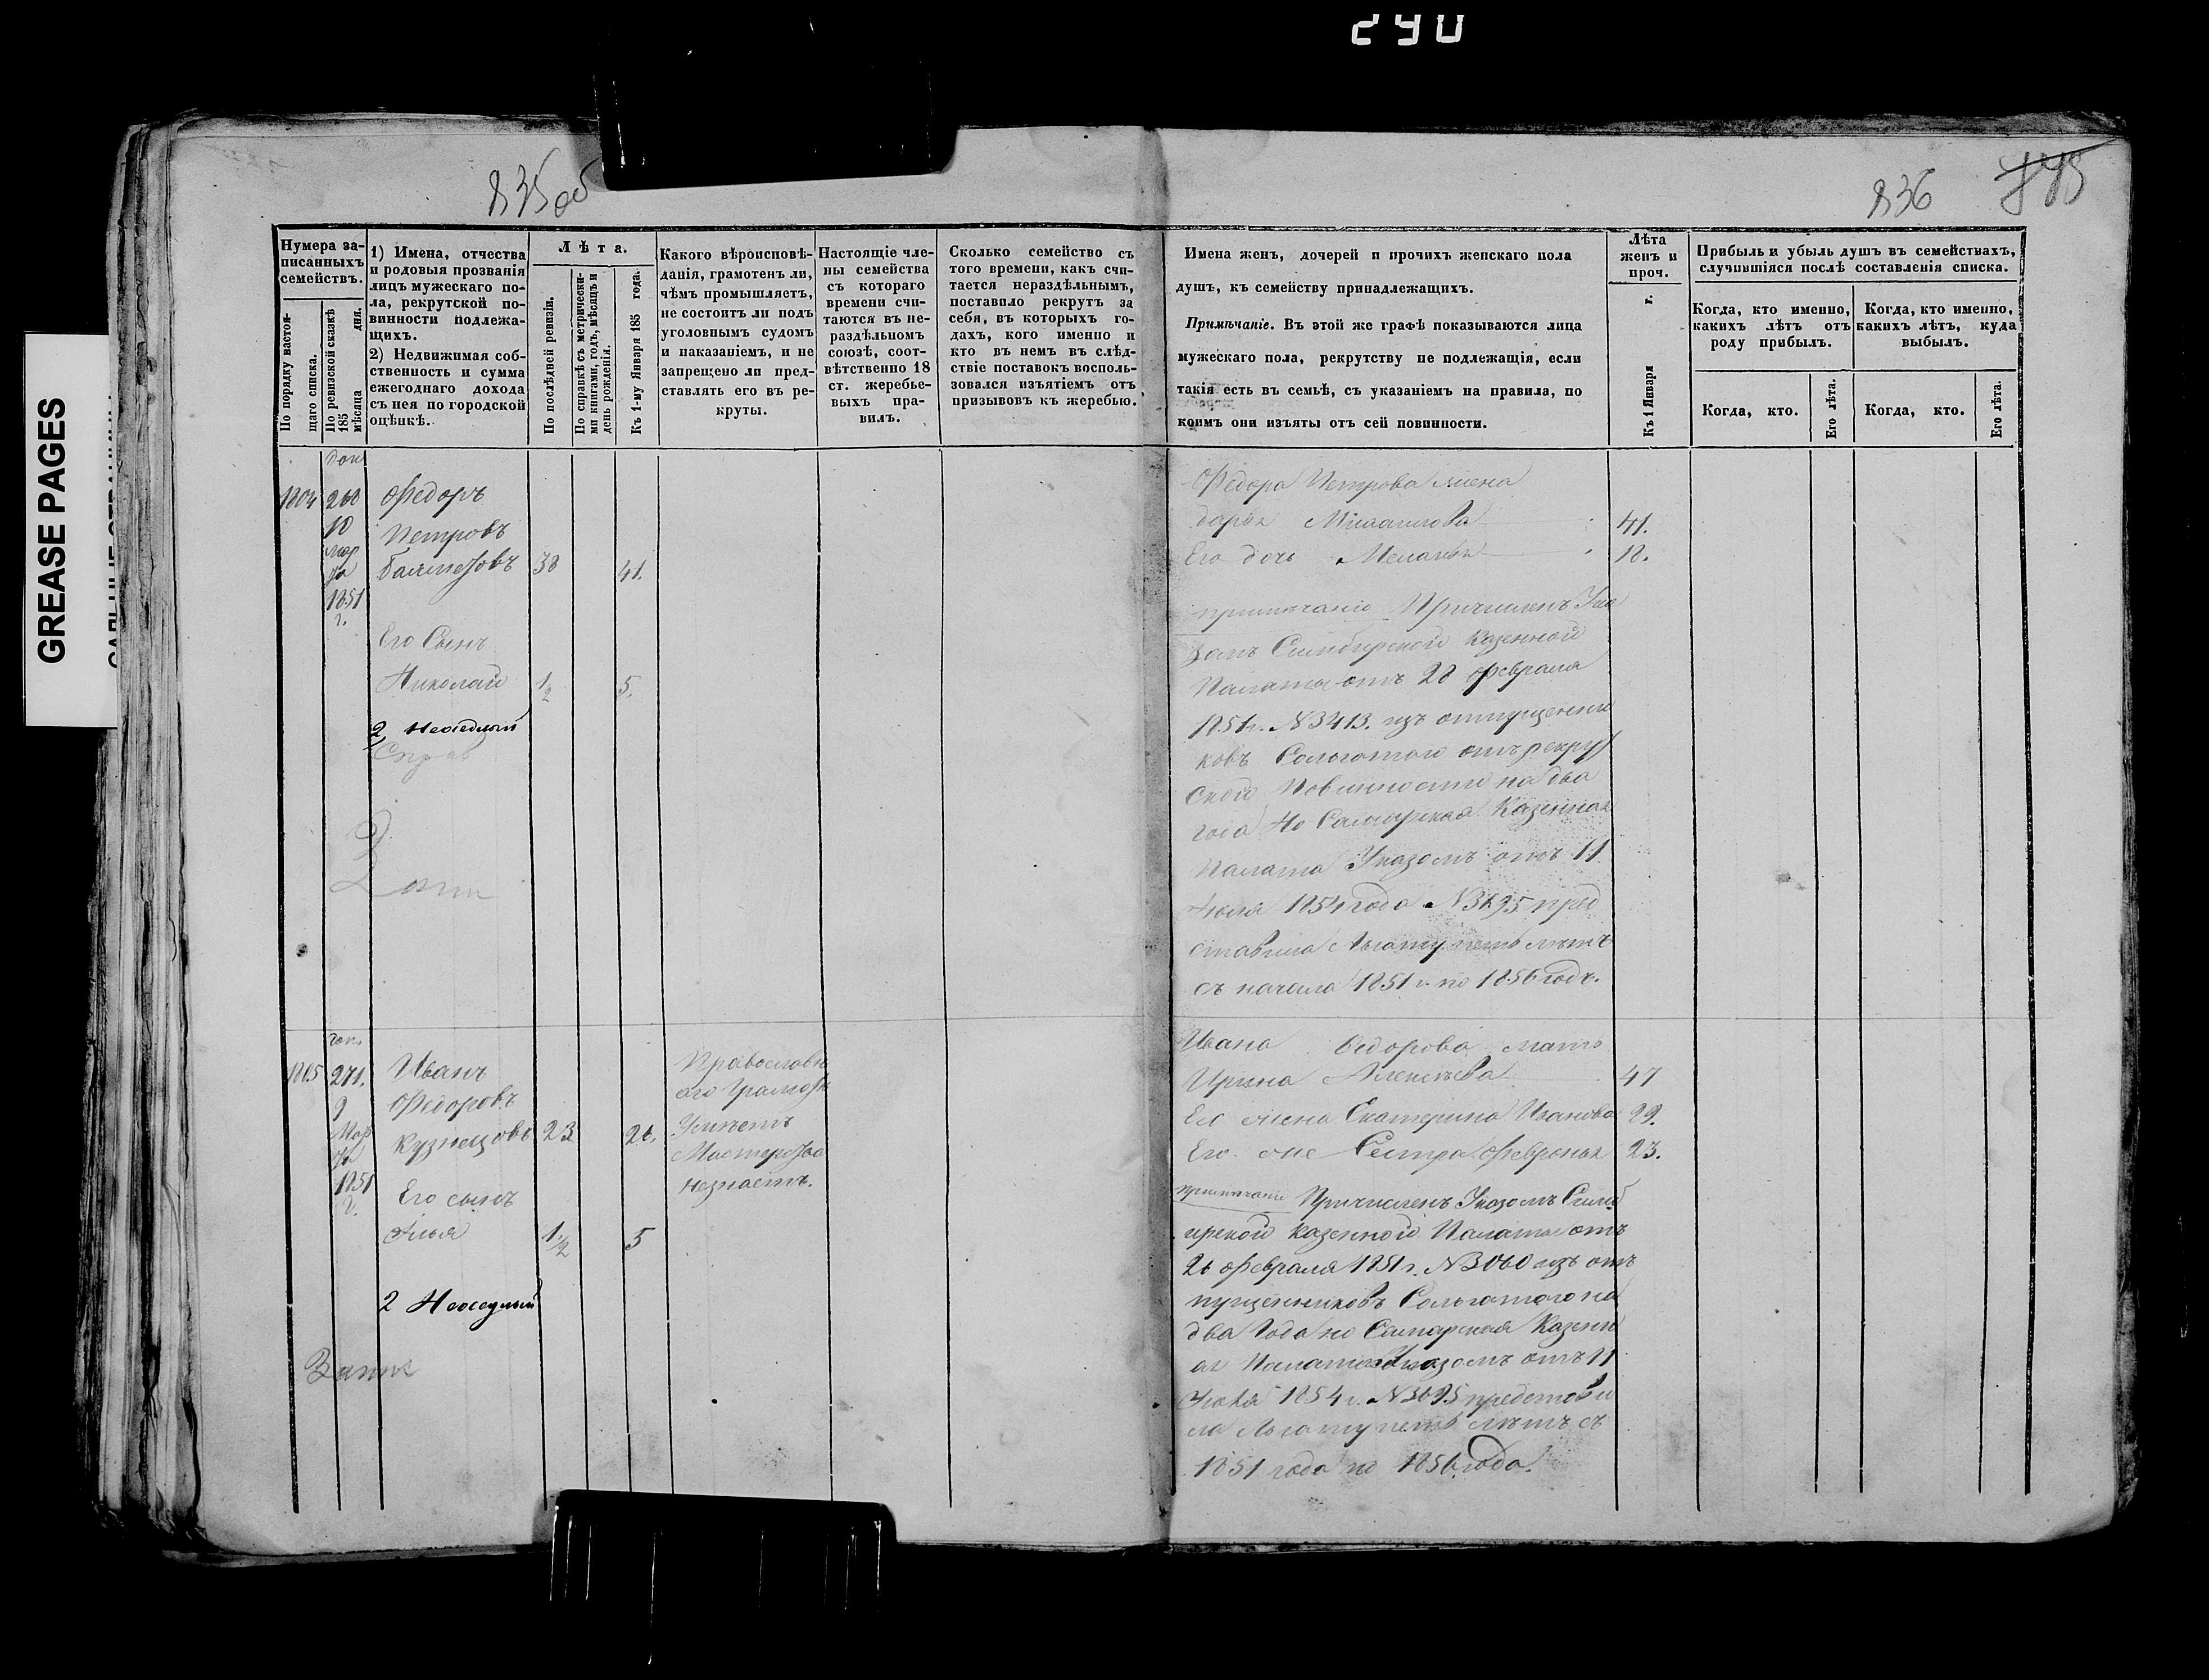 290
GREASE PAGES
835 об
836
Нумера записанныхъ семействъ.
По порядку настоящаго списка.
По ревизской сказкѣ 185 мѣсяца дня.
1) Имена, отчества
и родовыя прозванія
лицъ мужескаго по-
ла, рекрутской по-
винности подлежа-
щихъ.
2) Недвижимая соб-
ственность и сумма
ежегоднаго дохода
съ нея по городской
оцѣнкѣ.
Лѣта.
По послѣдней ревизіи.
По справкѣ съ метрически-
ми книгами, годъ, мѣсяцъ и
день рожденія.
Къ 1-му Января 185 года.
Какого вѣроисповѣ-
данія, грамотенъ ли,
чѣмъ промышляетъ,
не состоитъ ли подъ
уголовнымъ судомъ
и наказаніемъ, и не
запрещено ли пред-
ставлять его въ ре-
круты.
Настоящіе чле-
ны семейства
съ котораго
времени счи-
таются въ не-
раздѣльномъ
союзѣ, соот-
вѣтственно 18
ст. жеребье-
выхъ пра-
вилъ.
Сколько семейство съ
того времени, какъ счи-
тается нераздѣльнымъ,
поставило рекрутъ за
себя, въ которыхъ го-
дахъ, кого именно и
кто въ немъ въ слѣд-
ствіе поставокъ восполь-
зовался изъятіемъ отъ
призывовъ къ жеребью.
Имена женъ, дочерей и прочихъ женскаго пола
душъ, къ семейству принадлежащихъ.
Примѣчаніе. Въ этой же графѣ показываются лица
мужескаго пола, рекрутству не подлежащія, если
такія есть въ семьѣ, съ указаніемъ на правила, по
коимъ они изъяты отъ сей повинности.
Лѣта
женъ и
проч.
Къ 1 Января г.
Прибыль и убыль душъ въ семействахъ,
случившіяся послѣ составленія списка.
Когда, кто именно,
какихъ лѣтъ отъ
роду прибылъ.
Когда, кто именно,
какихъ лѣтъ, куда
выбылъ.
Когда, кто.
Его лѣта.
Когда, кто.
Его лѣта.
доп
1804 268 Федоръ
10 Петровъ
мар
та 38 41.
1851
г.
Его Сынъ
Николай 1/2 5.
2 Неоседлый
Федора Петрова жена
Дарья 41.
Его дочь Меланья 18.
примѣчаніе Причисленъ Ука
зомъ Симбирской Казенной
Палаты отъ 28 февраля
1851 г. №3413. изъ отпущенни
ковъ Сольготою отъ рекрут
ской Повинности на два
года Но Самарская Казенная
Палата Указомъ отъ 11
Июля 1854 года №3695 пред
ставила Льготу пять лѣтъ
съ начала 1851 г. по 1856 годъ.
доп.
1805 271. Иванъ
9 Федоровъ
Мар Кузнецовъ 23 26.
та
1851
г.
Его сынъ
Илья 1/2 5
2 Неоседлый
Православн
аго Грамотѣ
Умѣетъ
Мастерства
незнаетъ.
Ивана Федорова мать
Ирина Алексѣева 47
Его жена Екатерина Иванова 29.
Его же Сестра Февронья 23.
примѣчаніе Причисленъ Указомъ Симб
ирской Казенной Палаты отъ
26 февраля 1851 г. №3060 изъ от
пущенниковъ Сольготою на
два Года но Самарская Казенн
ая Палата Указомъ отъ 11
Июля 1854 г. №3695 представи
ла Льготу пять лѣтъ съ
1851 года по 1856 года.